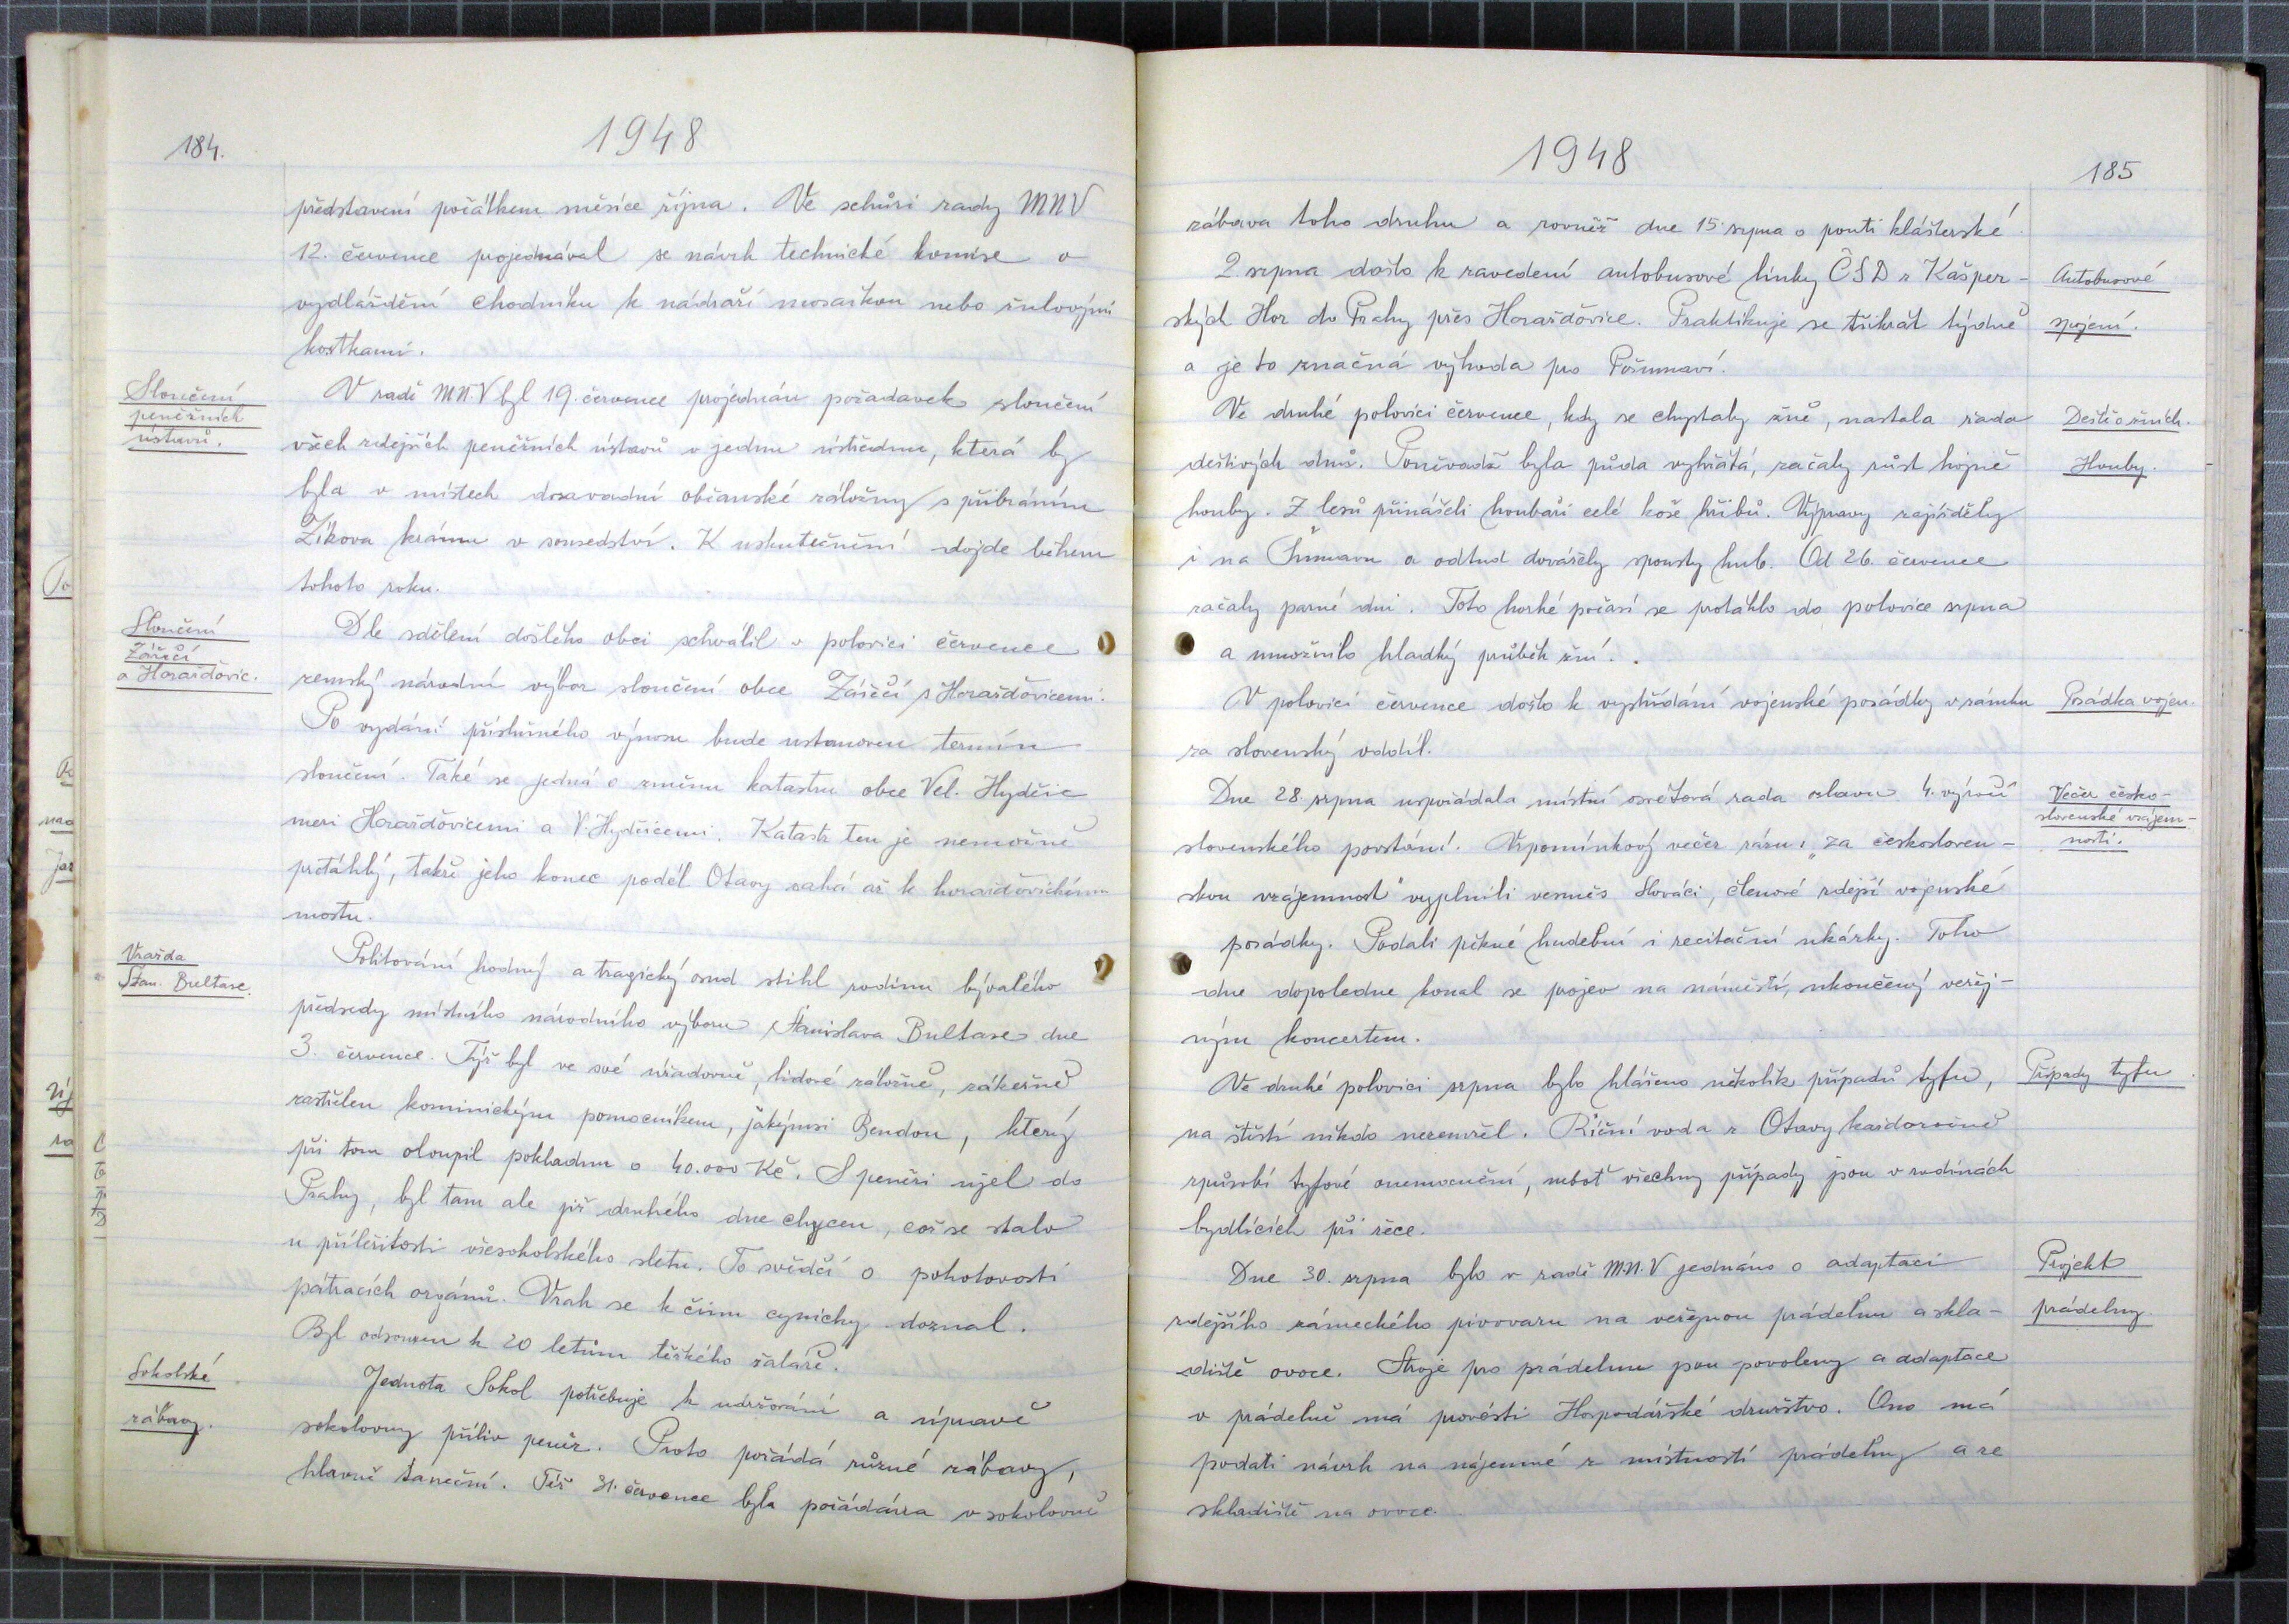 184.
1948
představení počátkem měsíce října. Ve schůzi rady MNV
12. července projednával se návrh technické komise o
vydláždění chodníku k nádraží mosaikou nebo žulovými
kostkami.
Sloučení
peněžních
ústavů.
V radě MNV byl 19. července projednán požadavek sloučení
všech zdejších peněžních ústavů v jednu ústřednu, která by
byla v místech dosavadní občanské záložny s přibráním
Zíkova krámu v sousedství. K uskutečnění dojde během
tohoto roku.
Sloučení
Zářečí
a Horažďovic.
Dle sdělení došlého obci schválil v polovici července
zemský národní výbor sloučení obce Zářečí s Horažďovicemi.
Po vydání příslušného výnosu bude ustanoven termín
sloučení. Také se jedná o změnu katastru obce Vel. Hydčic
mezi Horažďovicemi a V. Hydčicemi. Katastr ten je nemožně
protáhlý, takže jeho konec podél Otavy sahá až k horažďovickému
mostu.
Vražda
Stan. Bultase.
Politování hodný a tragický osud stihl rodinu bývalého
předsedy místního národního výboru Stanislava Bultase dne
3. července. Týž byl ve své úřadovně, lidové záložně, zákeřně
zastřelen kominickým pomocníkem, jakýmsi Bendou, který
při tom oloupil pokladnu o 40.000 Kč. S penězi ujel do
Prahy, byl tam ale již druhého dne chycen, což se stalo
u příležitosti všesokolského sletu. To svědčí o pohotovosti
pátracích orgánů. Vrah se k činu cynicky doznal.
Byl odsouzen k 20 letům těžkého žaláře.
Sokolské
zábavy.
Jednota Sokol potřebuje k udržování a úpravě
sokolovny příliv peněz. Proto pořádá různé zábavy,
hlavně taneční. Též 31. července byla pořádána v sokolovně
1948
185
zábava toho druhu a rovněž dne 15. srpna o pouti klášterské.
2. srpna došlo k zavedení autobusové linky ČSD z Kašper-
ských Hor do Prahy přes Horažďovice. Praktikuje se třikrát týdně
a je to značná výhoda pro Pošumaví.
Autobusové
spojení.
Ve druhé polovici července, kdy se chystaly žně, nastala řada
deštivých dnů. Poněvadž byla půda vyhřátá, začaly růst hojně
houby. Z lesů přinášeli houbaři celé koše hřibů. Výpravy zajížděly
i na Šumavu a odtud dovážely spousty hub. Od 26. července
začaly parné dni. Toto horké počasí se protáhlo do polovice srpna
a umožnilo hladký průběh žní.
Deště o žních.
Houby.
V polovici července došlo k vystřídání vojenské posádky v zámku
za slovenský oddíl.
Posádka vojen.
Dne 28. srpna uspořádala místní osvětová rada oslavu 4. výročí
slovenského povstání. Vzpomínkový večer rázu: "Za českosloven-
skou vzájemnost" vyplnili vesměs Slováci, členové zdejší vojenské
posádky. Podali pěkné hudební i recitační ukázky. Toho
dne dopoledne konal se projev na náměstí, ukončený veřej-
ným koncertem.
Večer česko-
slovenské vzájem-
nosti.
Ve druhé polovici srpna bylo hlášeno několik případů tyfu,
na štěstí nikdo nezemřel. Říční voda z Otavy každoročně
způsobí tyfové onemocnění, neboť všechny případy jsou v rodinách
bydlících při řece.
Případy tyfu.
Dne 30. srpna bylo v radě MNV jednáno o adaptaci
zdejšího zámeckého pivovaru na veřejnou prádelnu a skla-
diště ovoce. Stroje pro prádelnu jsou povoleny a adaptace
v prádelně má provésti Hospodářské družstvo. Ono má
podati návrh na nájemné z místností prádelny a ze
skladiště na ovoce.
Projekt
prádelny.